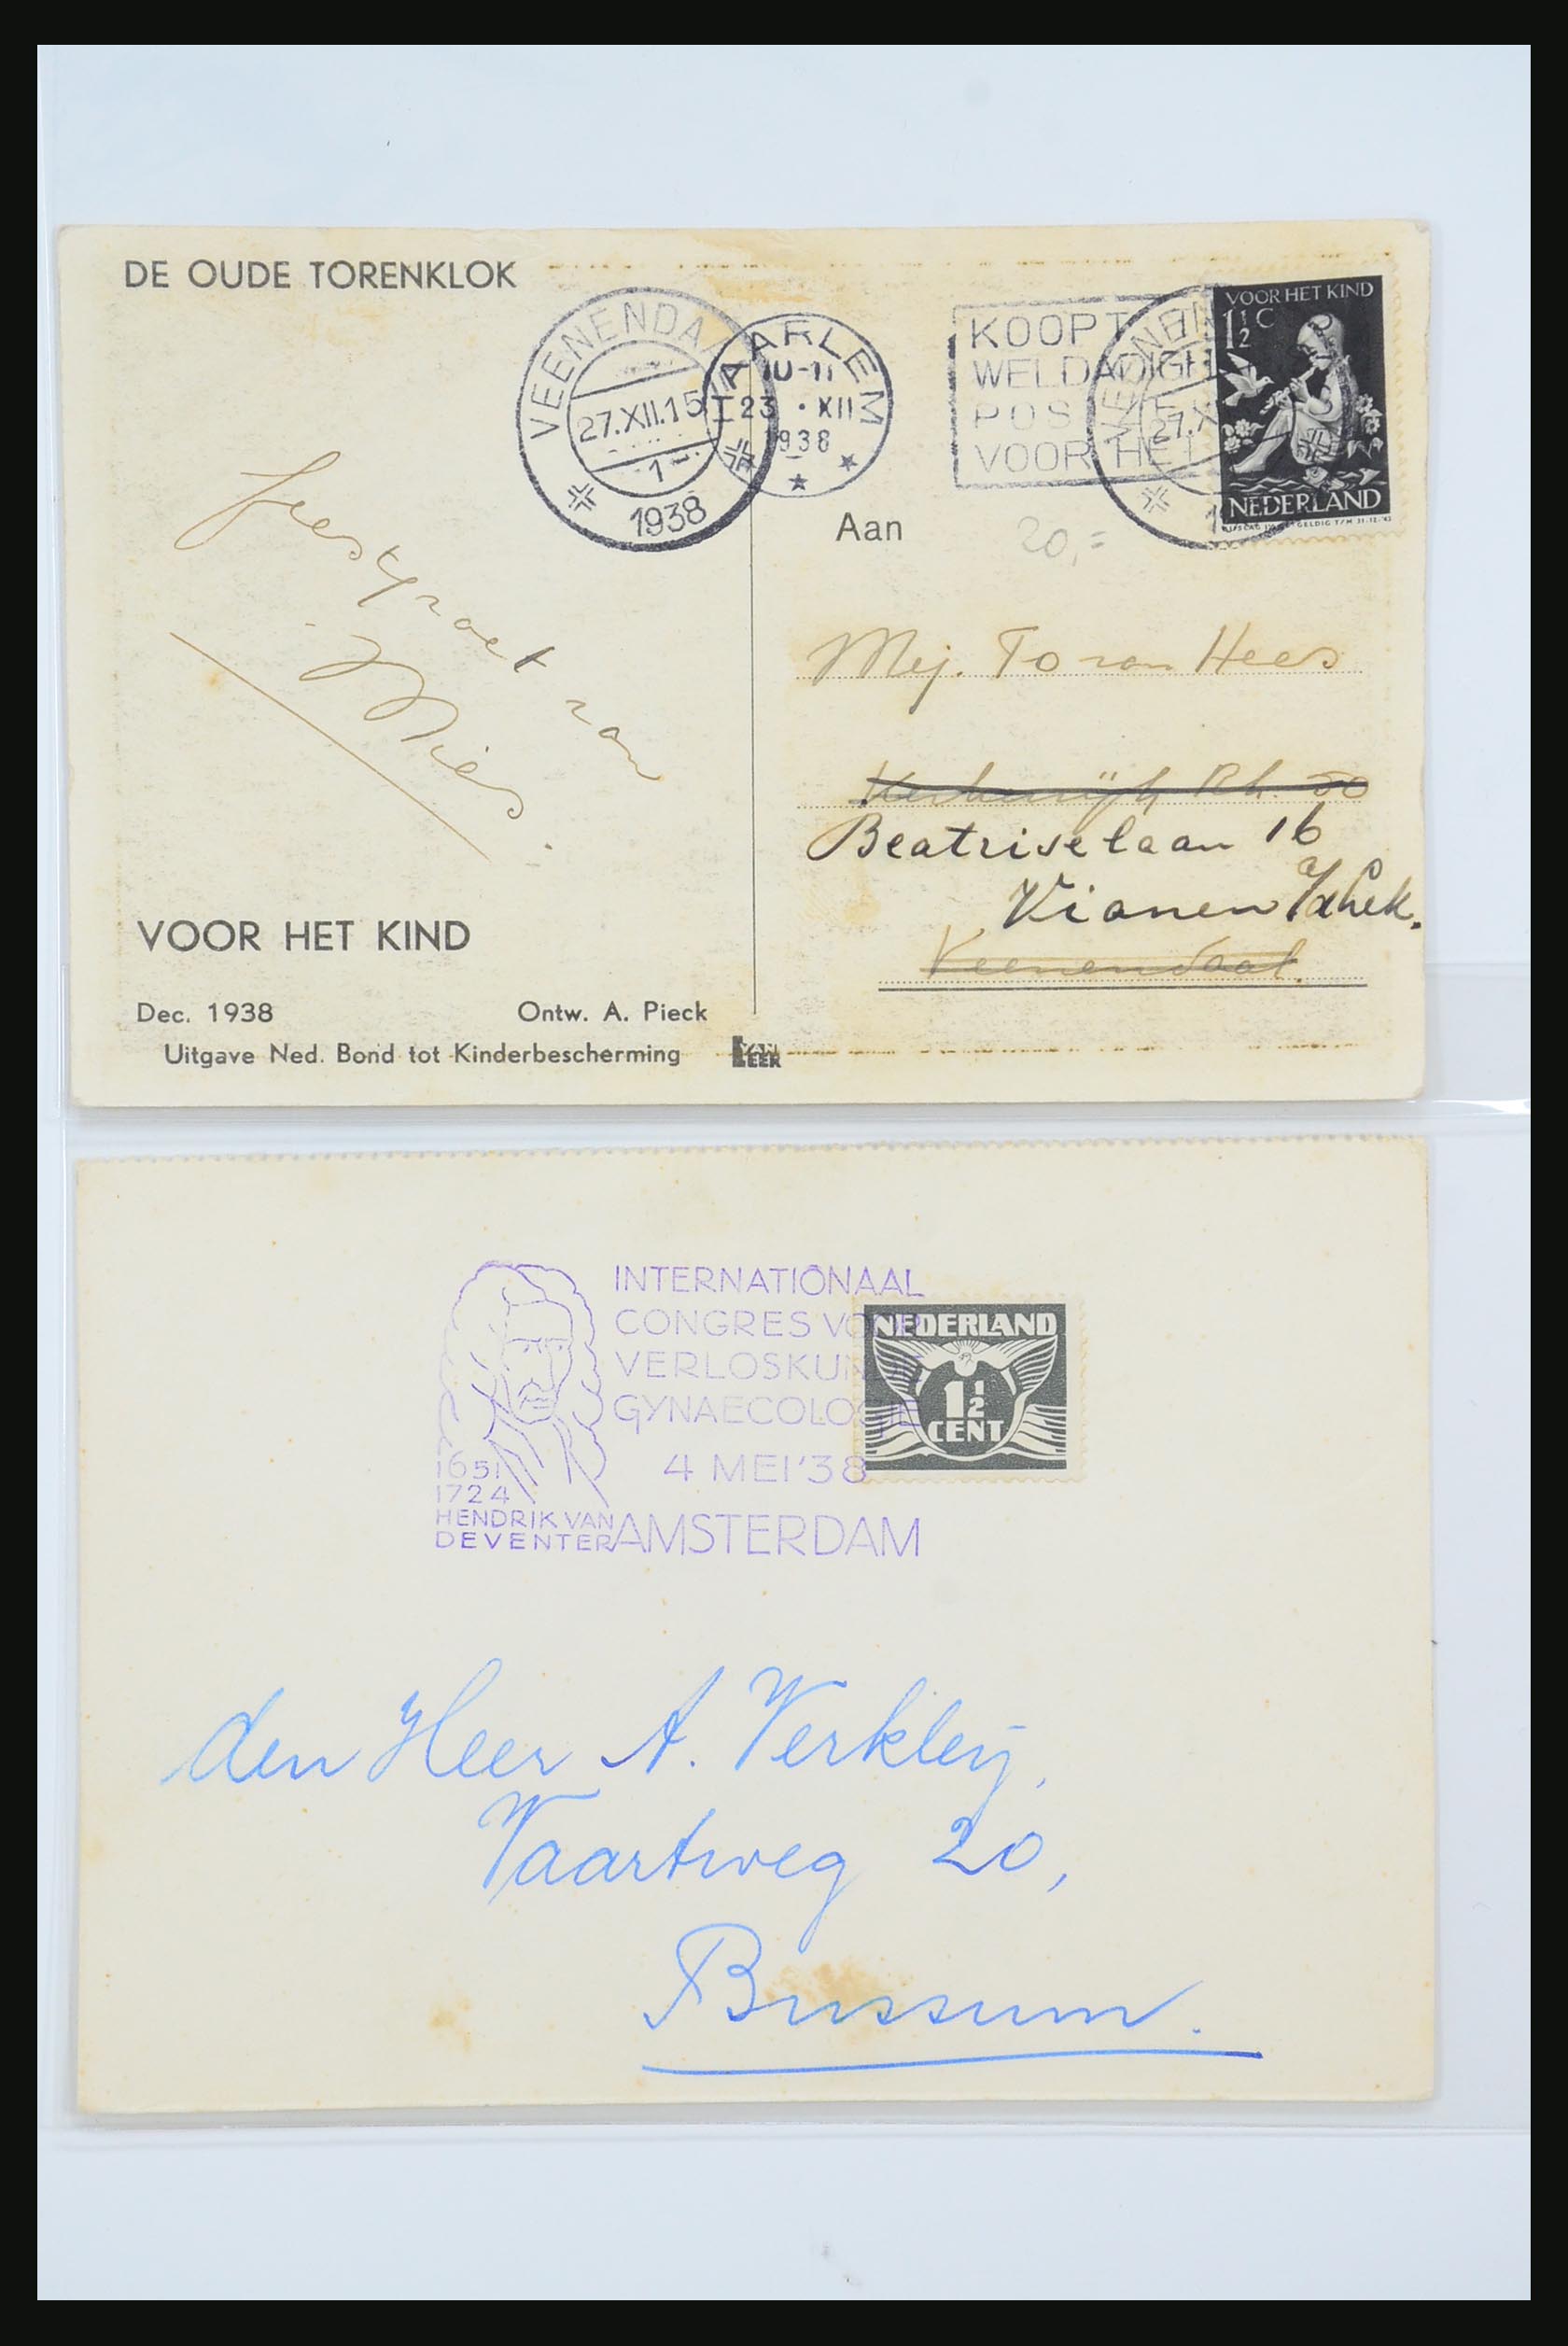 DE OUDE TORENKLOK
VEENENDA
27.XII.15
1
1938
HAARLEM
10-11
23 · XII
1938
KOOPT
WELDADIGH
POS ZE
VOOR HET
27.X
VOOR HET KIND
1½ C
NEDERLAND
GELDIG T/M 31.12.43
Aan
20,=
Feestgroet van
Mies.
Mej. To van Hees
50
Beatriselaan 16
Vianen
Veenendaal.
VOOR HET KIND
Dec. 1938 Ontw. A. Pieck
Uitgave Ned. Bond tot Kinderbescherming
VAN LEER
INTERNATIONAAL
CONGRES VOOR
VERLOSKUNDE
GYNAECOLOGIE
4 MEI '38
AMSTERDAM
1651
1724
HENDRIK VAN
DEVENTER
NEDERLAND
1½
CENT
den Heer A. Verkleij,
Vaartweg 20,
Bussum.